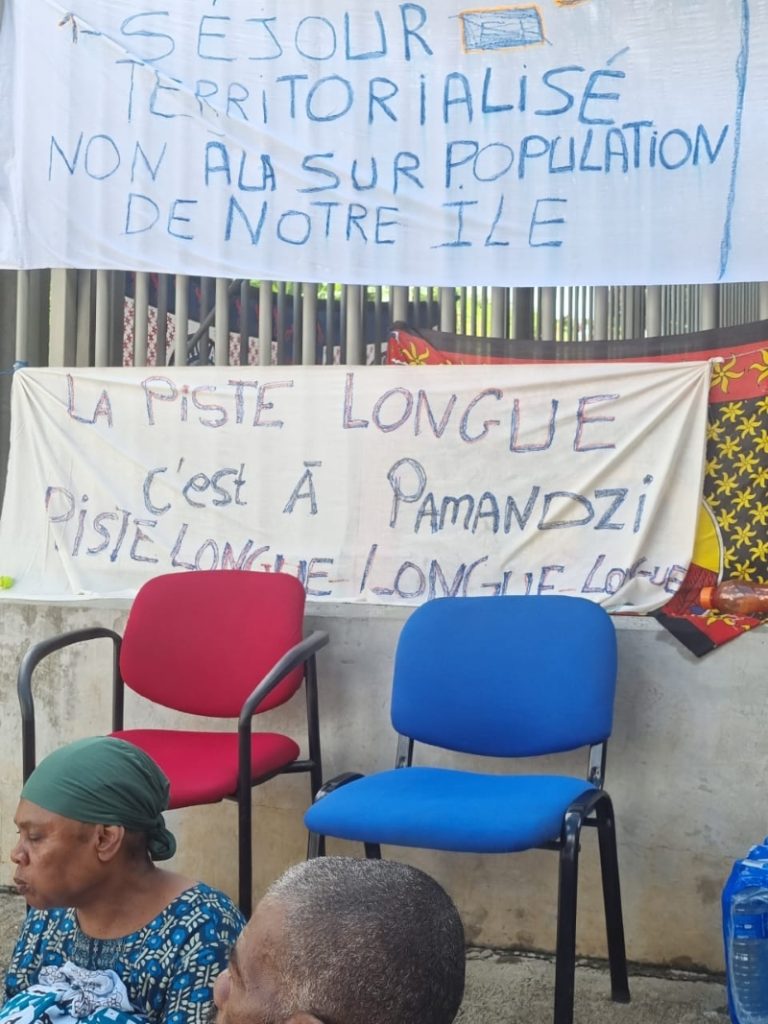 - SÉJOUR
TERRITORIALISÉ
NON À LA SURPOPULATION
DE NOTRE ILE
LA PISTE LONGUE
c'est À PAMANDZI
PISTE LONGUE - LONGUE - LONGUE